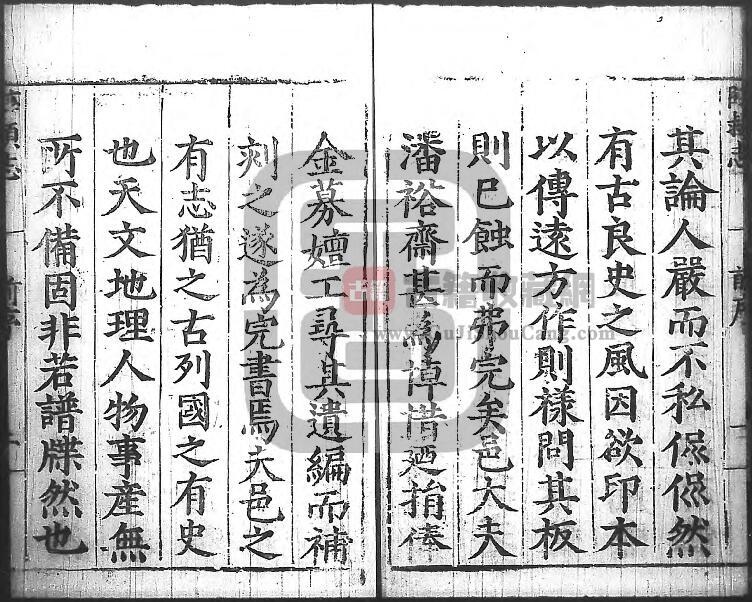 其論人嚴而不私侃侃然
有古良史之風因欲印本
以傳遠方作則禄問其板
則已蝕而弗完矣邑大夫
潘裕齋甚為悼惜廼捐俸
金募嬗工尋其遺編而補
刻之遂為完書焉夫邑之
有志猶之古列國之有史
也天文地理人物事産無
所不備固非若譜牒然也
前序
古籍收藏網